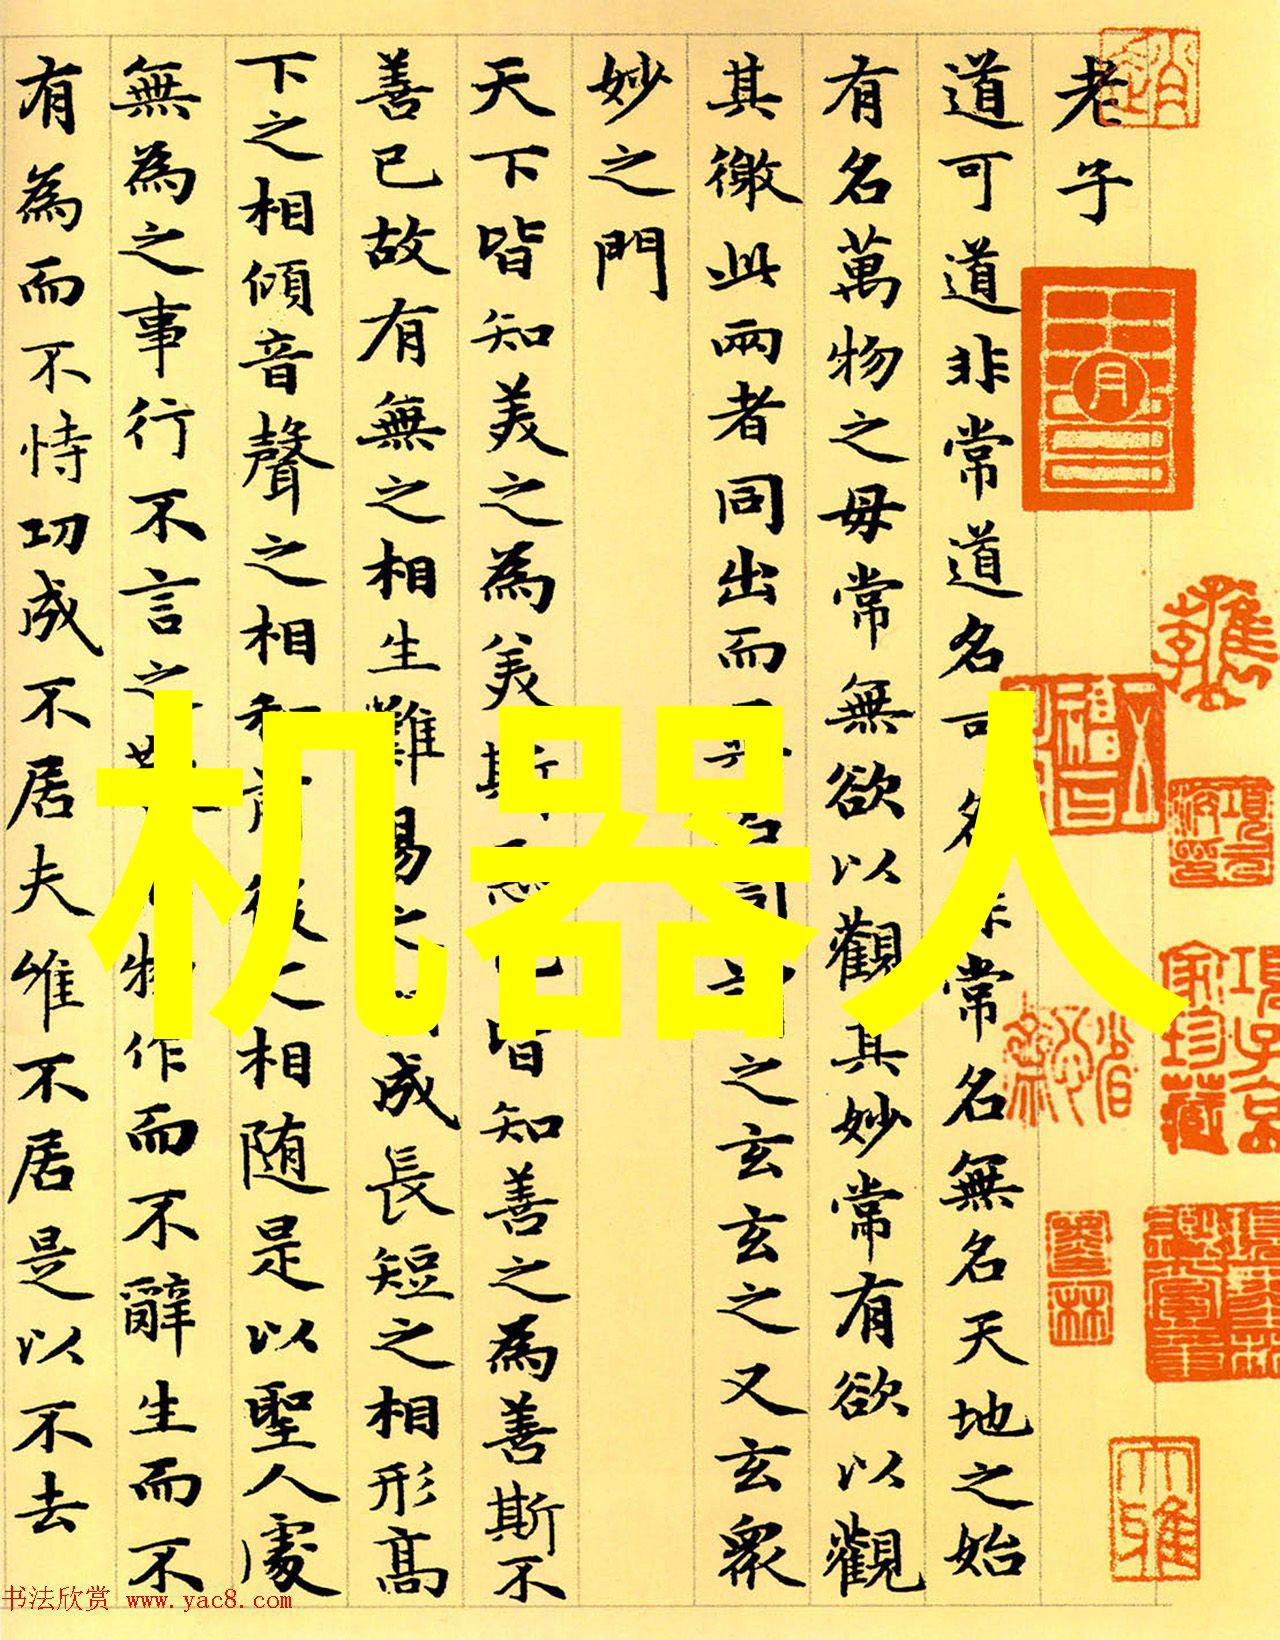 老子
道可道非常道名可名非常名無名天地之始
有名萬物之母常無欲以觀其妙常有欲以觀
其徼此兩者同出而異名同謂之玄玄之又玄衆
妙之門
天下皆知美之為美斯惡已皆知善之為善斯不
善已故有無之相生難易之相成長短之相形髙
下之相傾音聲之相和前後之相随是以聖人處
無為之事行不言之教萬物作而不辭生而不
有為而不恃功成不居夫唯不居是以不去
机器人
书法欣赏 www.yac8.com